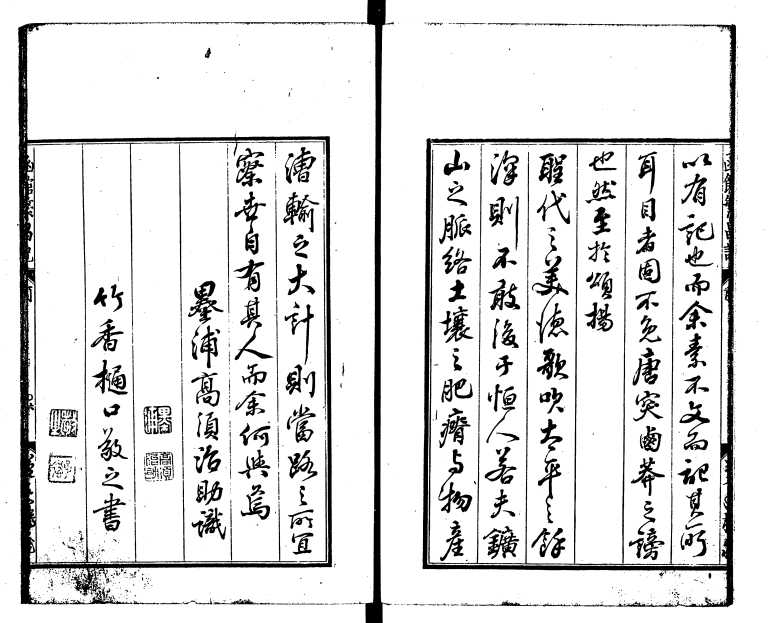 以有記也而余素不文而記其所
耳目者固不免唐突鹵莽之謗
也然至於頌揚
聖代之美德歌吹太平之餘
澤則不敢後于恒人若夫鑛
山之脈絡土壤之肥瘠与物産
漕輸之大計則當路之所宜
察世自有其人而余何與焉
墨浦高須治助識
竹香樋口敬之書